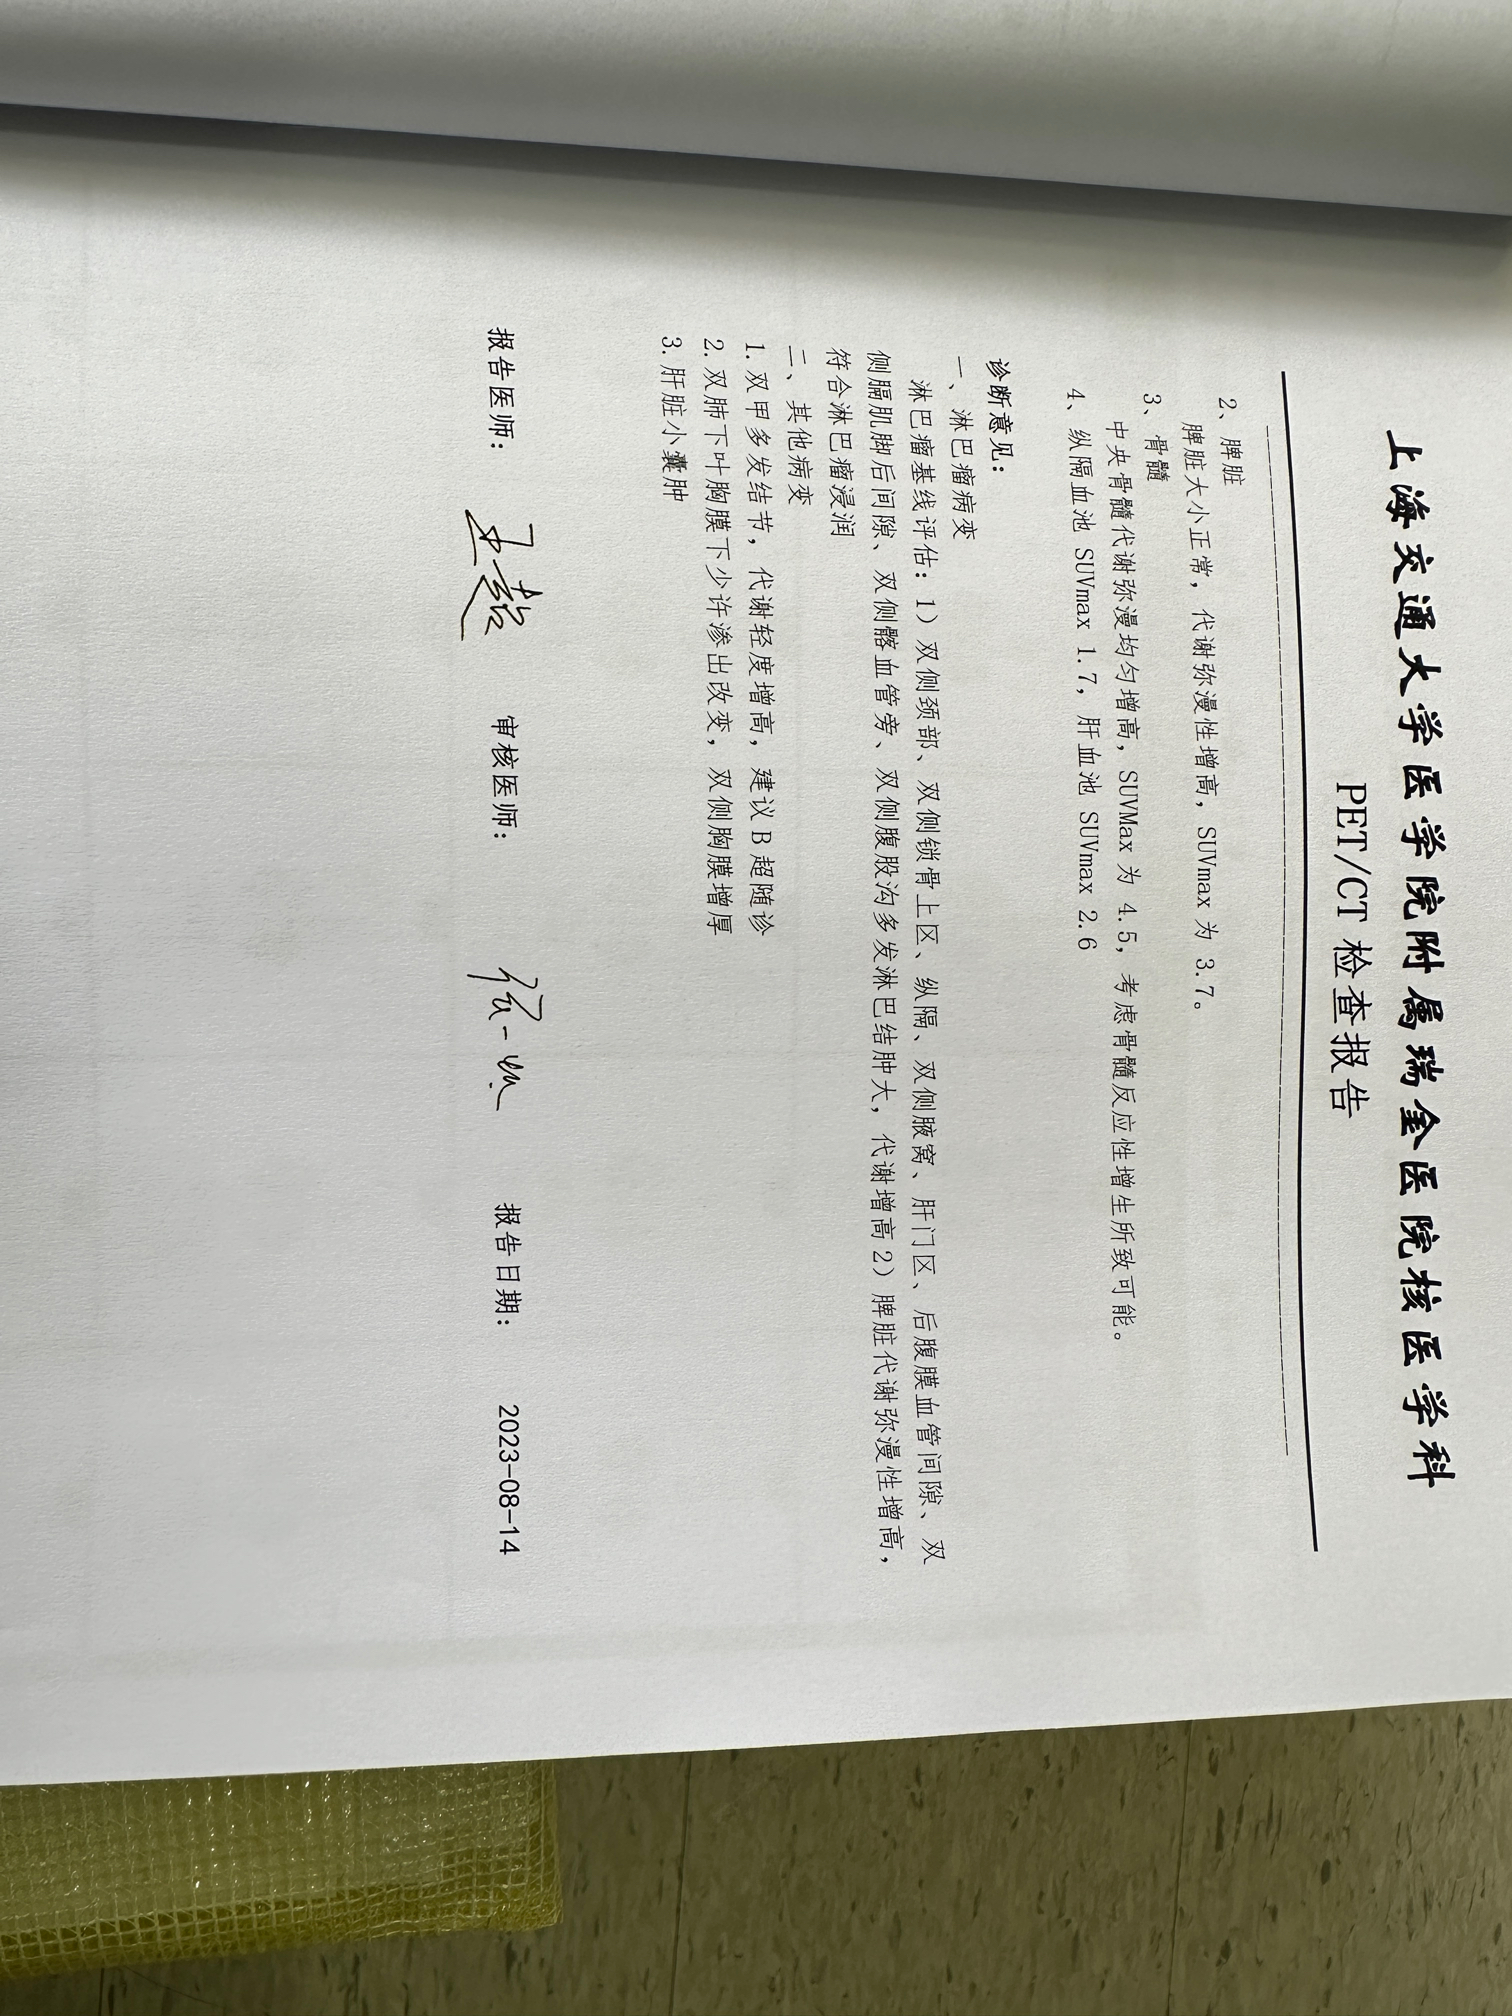 上海交通大学医学院附属瑞金医院核医学科
PET/CT 检查报告
2、脾脏
脾脏大小正常，代谢弥漫性增高，SUVmax 为 3.7。
3、骨髓
中央骨髓代谢弥漫均匀增高，SUVMax 为 4.5，考虑骨髓反应性增生所致可能。
4、纵隔血池 SUVmax 1.7，肝血池 SUVmax 2.6
诊断意见：
一、淋巴瘤病变
淋巴瘤基线评估：1）双侧颈部、双侧锁骨上区、纵隔、双侧腋窝、肝门区、后腹膜血管间隙、双
侧膈肌脚后间隙、双侧髂血管旁、双侧腹股沟多发淋巴结肿大，代谢增高 2）脾脏代谢弥漫性增高，
符合淋巴瘤浸润
二、其他病变
1. 双甲多发结节，代谢轻度增高，建议 B 超随诊
2. 双肺下叶胸膜下少许渗出改变，双侧胸膜增厚
3. 肝脏小囊肿
报告医师： 王超 审核医师： 报告日期： 2023-08-14